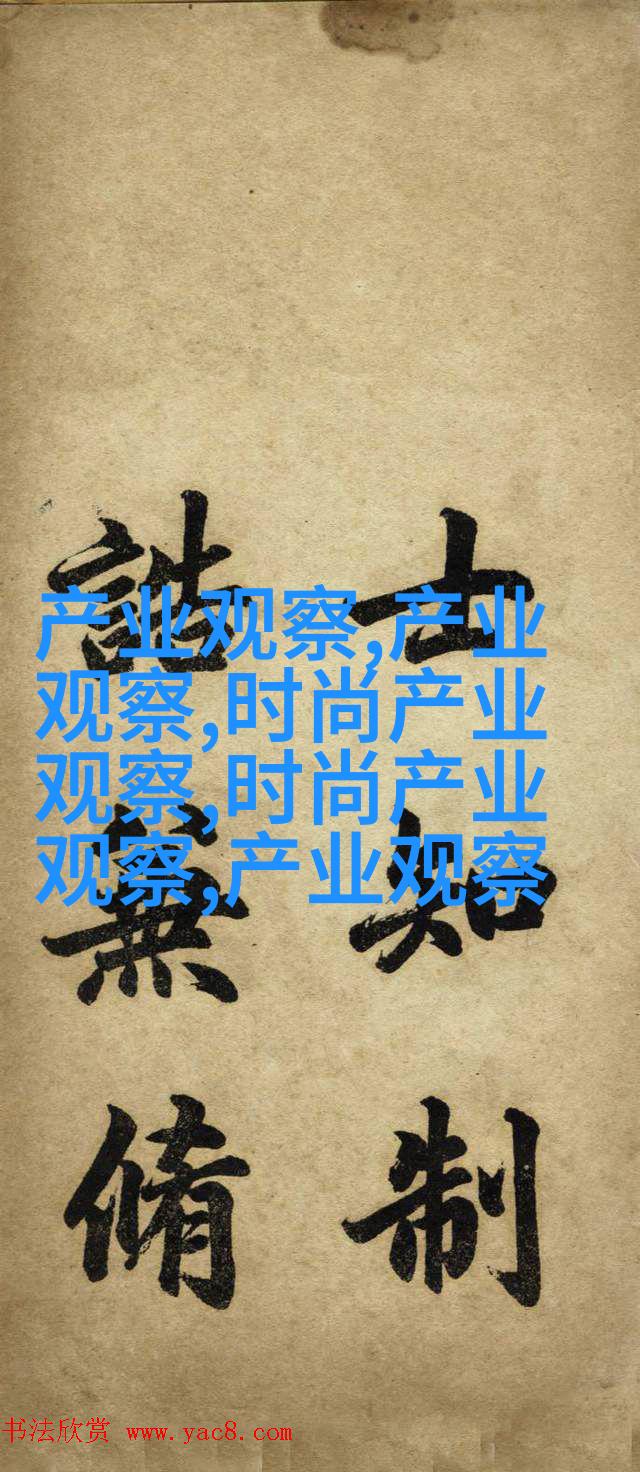 士知制
誥兼脩
产业观察,产业
观察,时尚产业
观察,时尚产业
观察,产业观察
书法欣赏 www.yac8.com